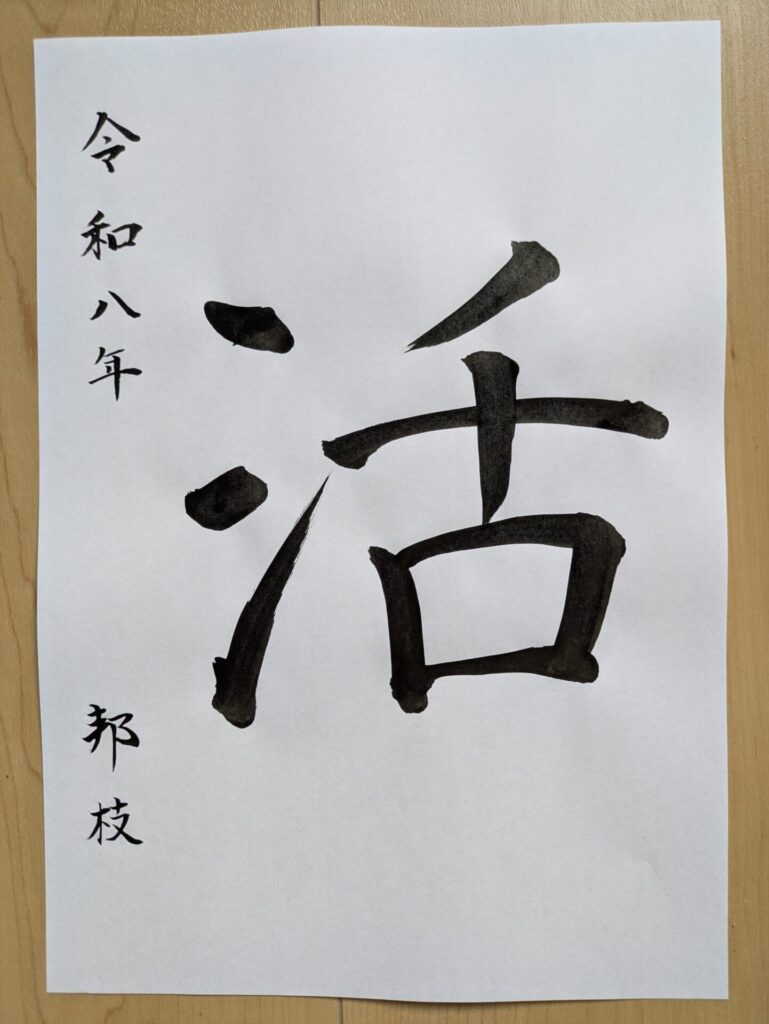 活
令和八年
邦枝